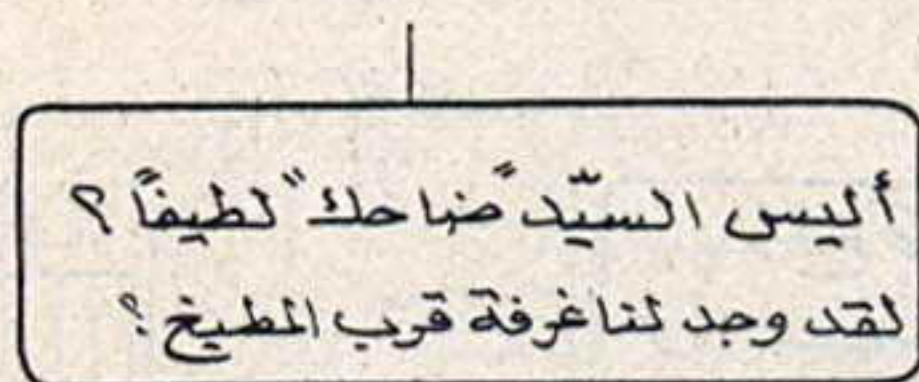 أليس السيّد "ضاحك" لطيفاً؟
لقد وجد لنا غرفة قرب المطبخ؟